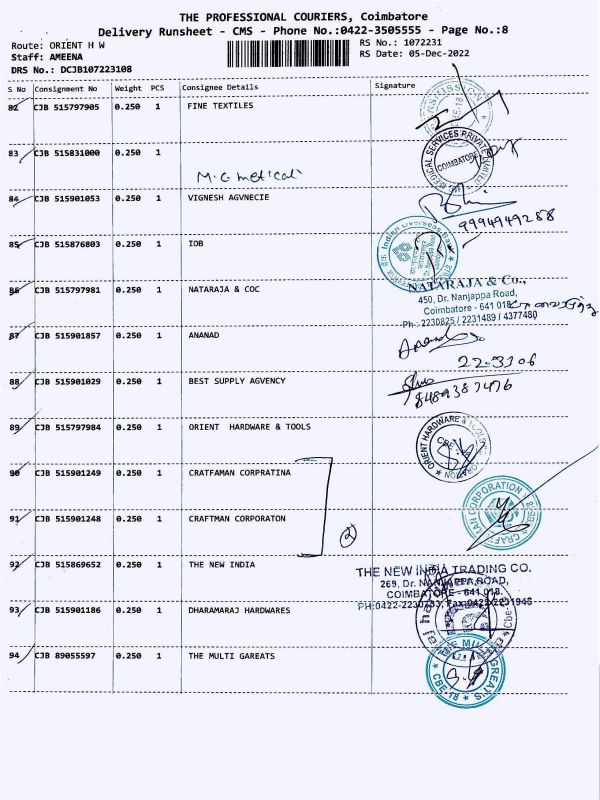 THE PROFESSIONAL COURIERS, Coimbatore
Delivery Runsheet - CMS - Phone No.:0422-3505555 - Page No.:8
Route: ORIENT H W
RS No.: 1072231
Staff: AMEENA
RS Date: 05-Dec-2022
DRS No.: DCJB107223108
S No Consignment No Weight PCS Consignee Details Signature
82 CJB 515797905 0.250 1 FINE TEXTILES
83 CJB 515831000 0.250 1
COIMBATORE
M.G. metical
84 CJB 515901053 0.250 1 VIGNESH AGVNECIE
9994949288
85 CJB 515876803 0.250 1 IOB
Indian Overseas Bank
86 CJB 515797981 0.250 1 NATARAJA & COC
NATARAJA & Co.,
450, Dr. Nanjappa Road,
Coimbatore - 641 018
Ph : 2230825 / 2231489 / 4377480
87 CJB 515901857 0.250 1 ANANAD
Anand
22-3106
88 CJB 515901029 0.250 1 BEST SUPPLY AGVENCY
8489387476
89 CJB 515797984 0.250 1 ORIENT HARDWARE & TOOLS
ORIENT HARDWARE & TOOLS
90 CJB 515901249 0.250 1 CRATFAMAN CORPRATINA
91 CJB 515901248 0.250 1 CRAFTMAN CORPORATON
2
CORPORATION
92 CJB 515869652 0.250 1 THE NEW INDIA
THE NEW INDIA TRADING CO.
269, Dr. NANJAPPA ROAD,
COIMBATORE - 641 018.
PH:0422-2230733, Fax:0422-2231946
93 CJB 515901186 0.250 1 DHARAMARAJ HARDWARES
94 CJB 89055597 0.250 1 THE MULTI GAREATS
CBE-18